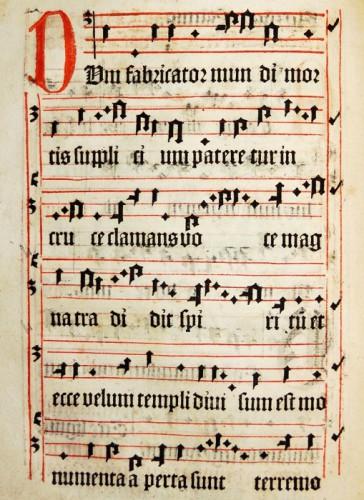 Dum fabricator mun di mor
tis suppli ci um patere tur in
cru ce clamans vo ce mag
na tra di dit spi ri tū et
ecce velum templi divi sum est mo
numenta a perta sunt terremo